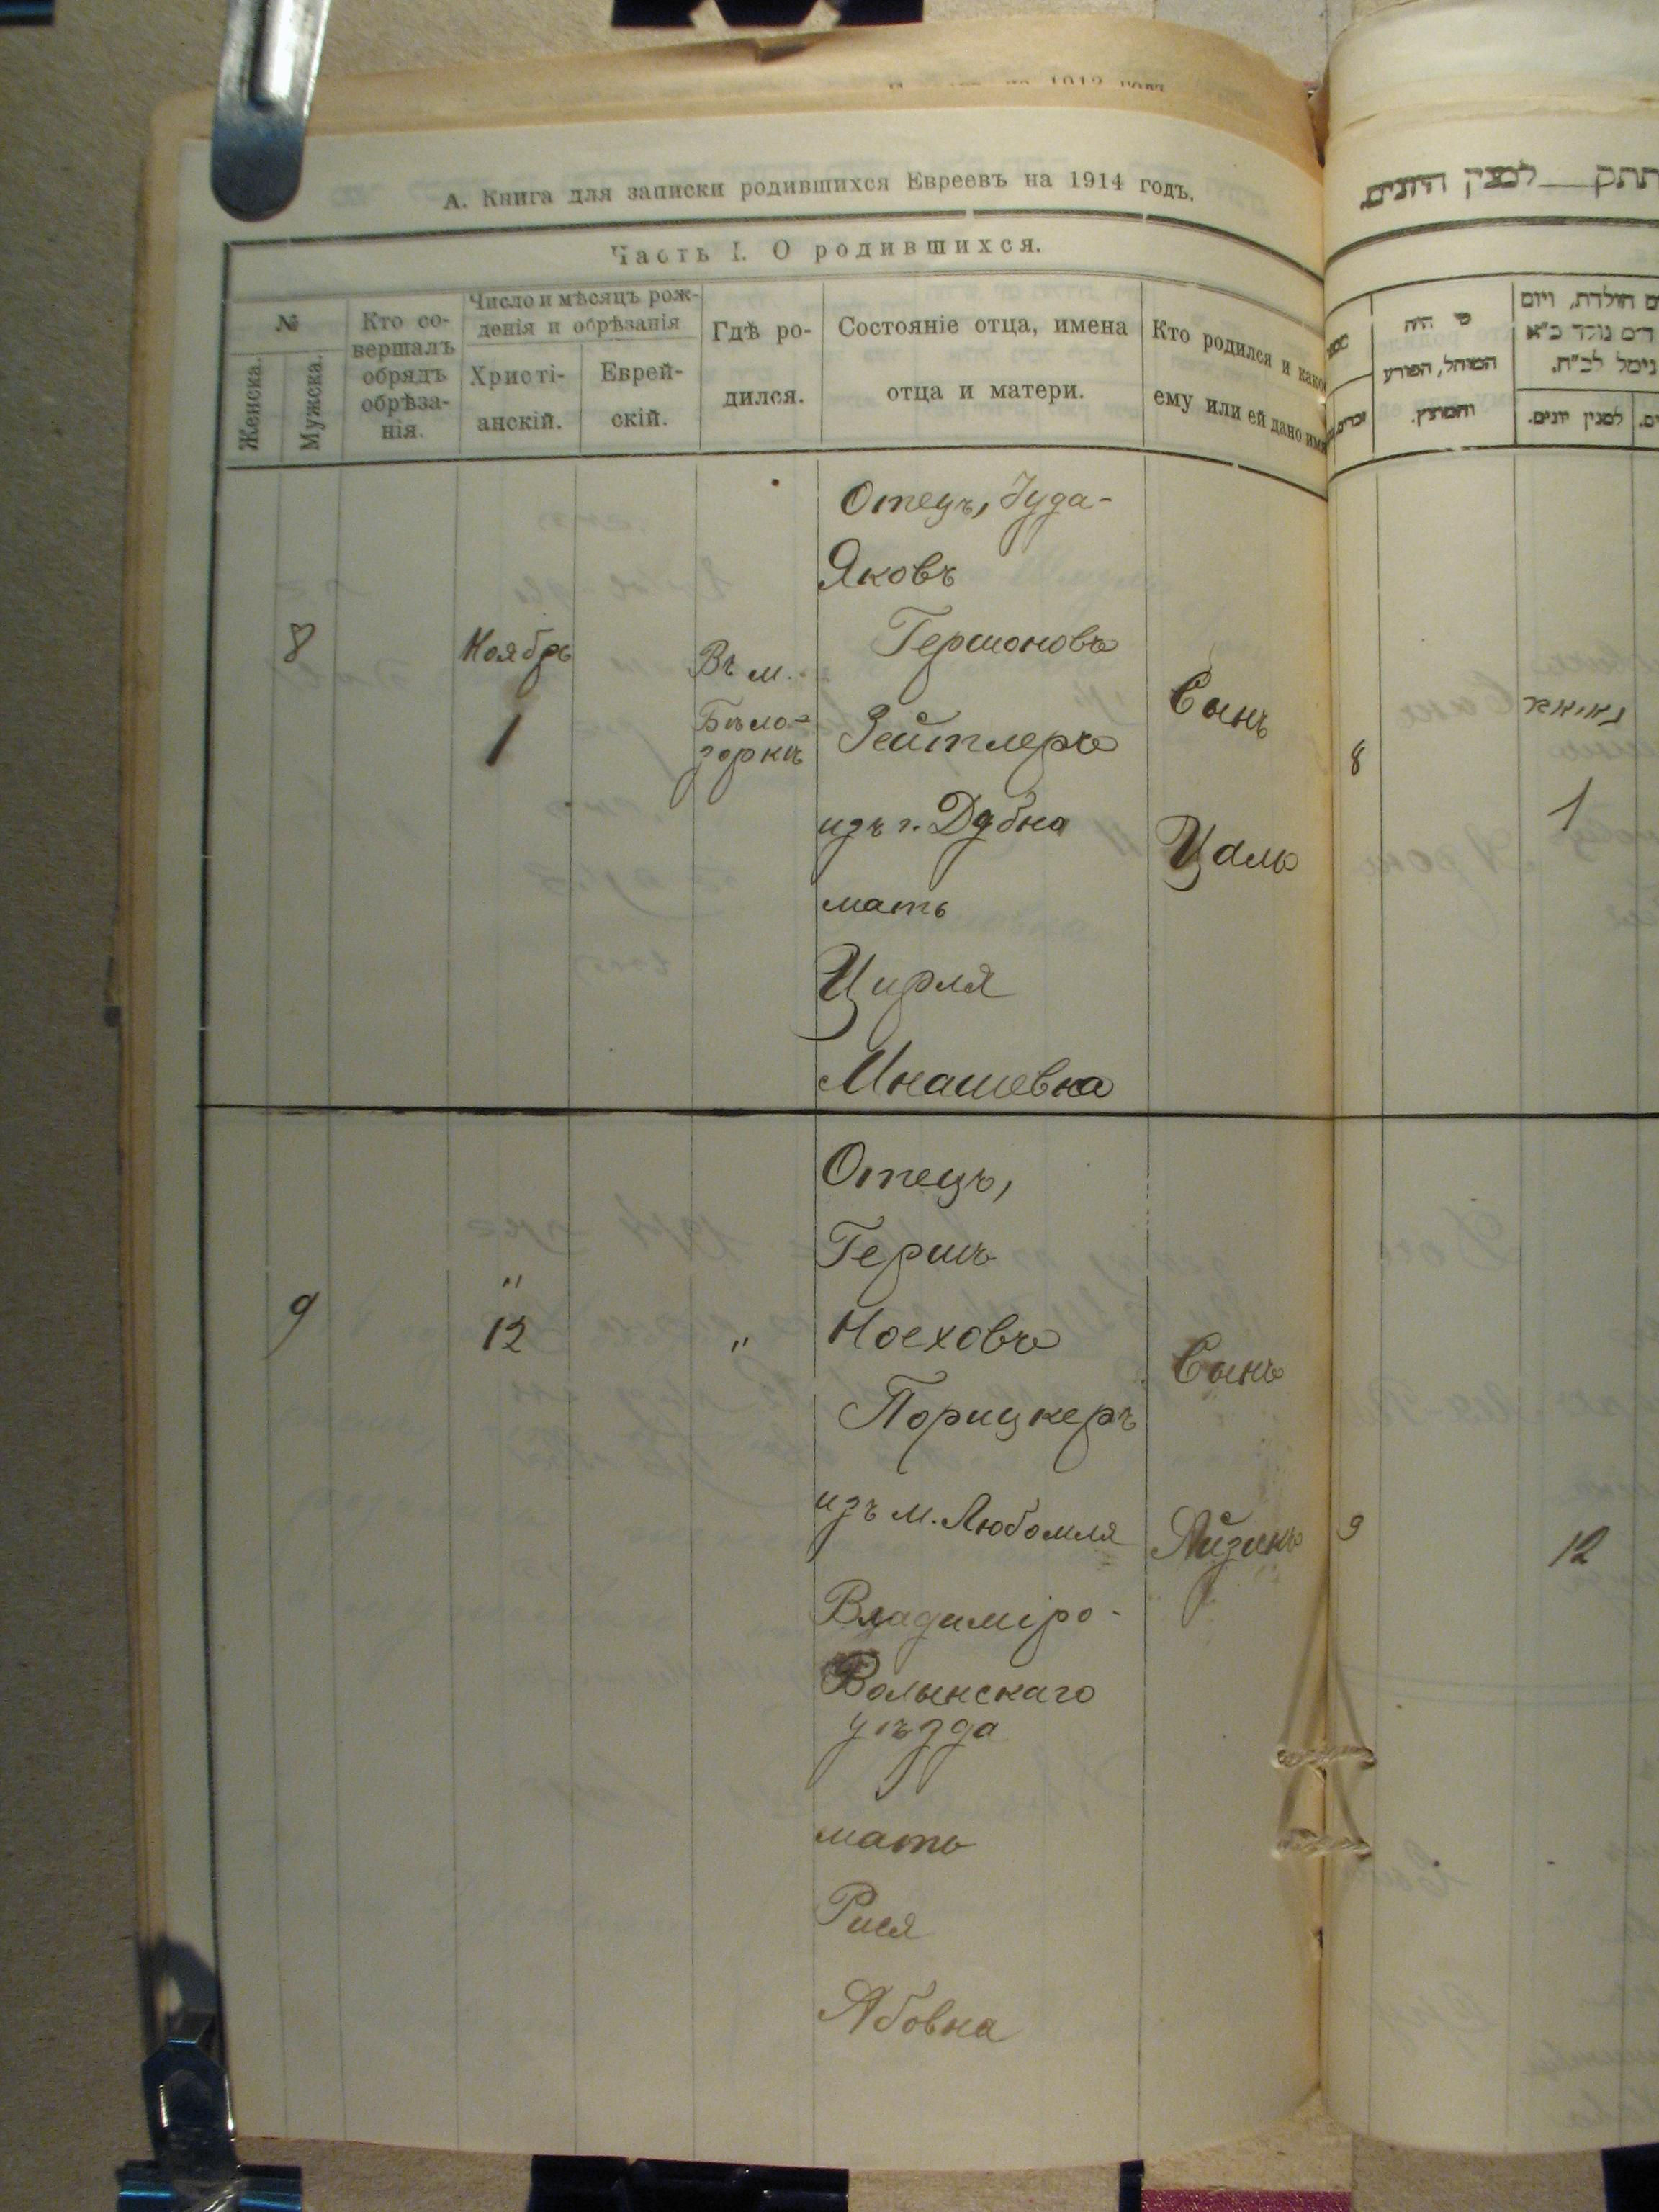 А. Книга для записки родившихся Евреевъ на 1914 годъ.
Часть I. О родившихся.
№
Женска.
Мужска.
Кто со-
вершалъ
обрядъ
обрѣза-
нія.
Число и мѣсяцъ рож-
денія и обрѣзанія
Христі-
анскій.
Еврей-
скій.
Гдѣ ро-
дился.
Состояніе отца, имена
отца и матери.
Кто родился и како
ему или ей дано имя
8
Ноябрь
1
Въ м.
Бѣло-
горкѣ
Отецъ, Іуда-
Яковъ
Гершоновъ
Зейтлеръ
изъ г. Дубна
мать
Цирля
Мнашевна
Сынъ
Цаль
9
"
12
"
Отецъ,
Гершъ
Ноеховъ
Порицкеръ
изъ м. Любомля
Владиміро-
Волынскаго
уѣзда
мать
Рися
Абовна
Сынъ
Айзикъ
לסנין היונים
מי היה
המוהל, הפורע
והמוצץ.
הולדת, ויום
נימל לב"ח.
למנין יונים.
8
1
9
12